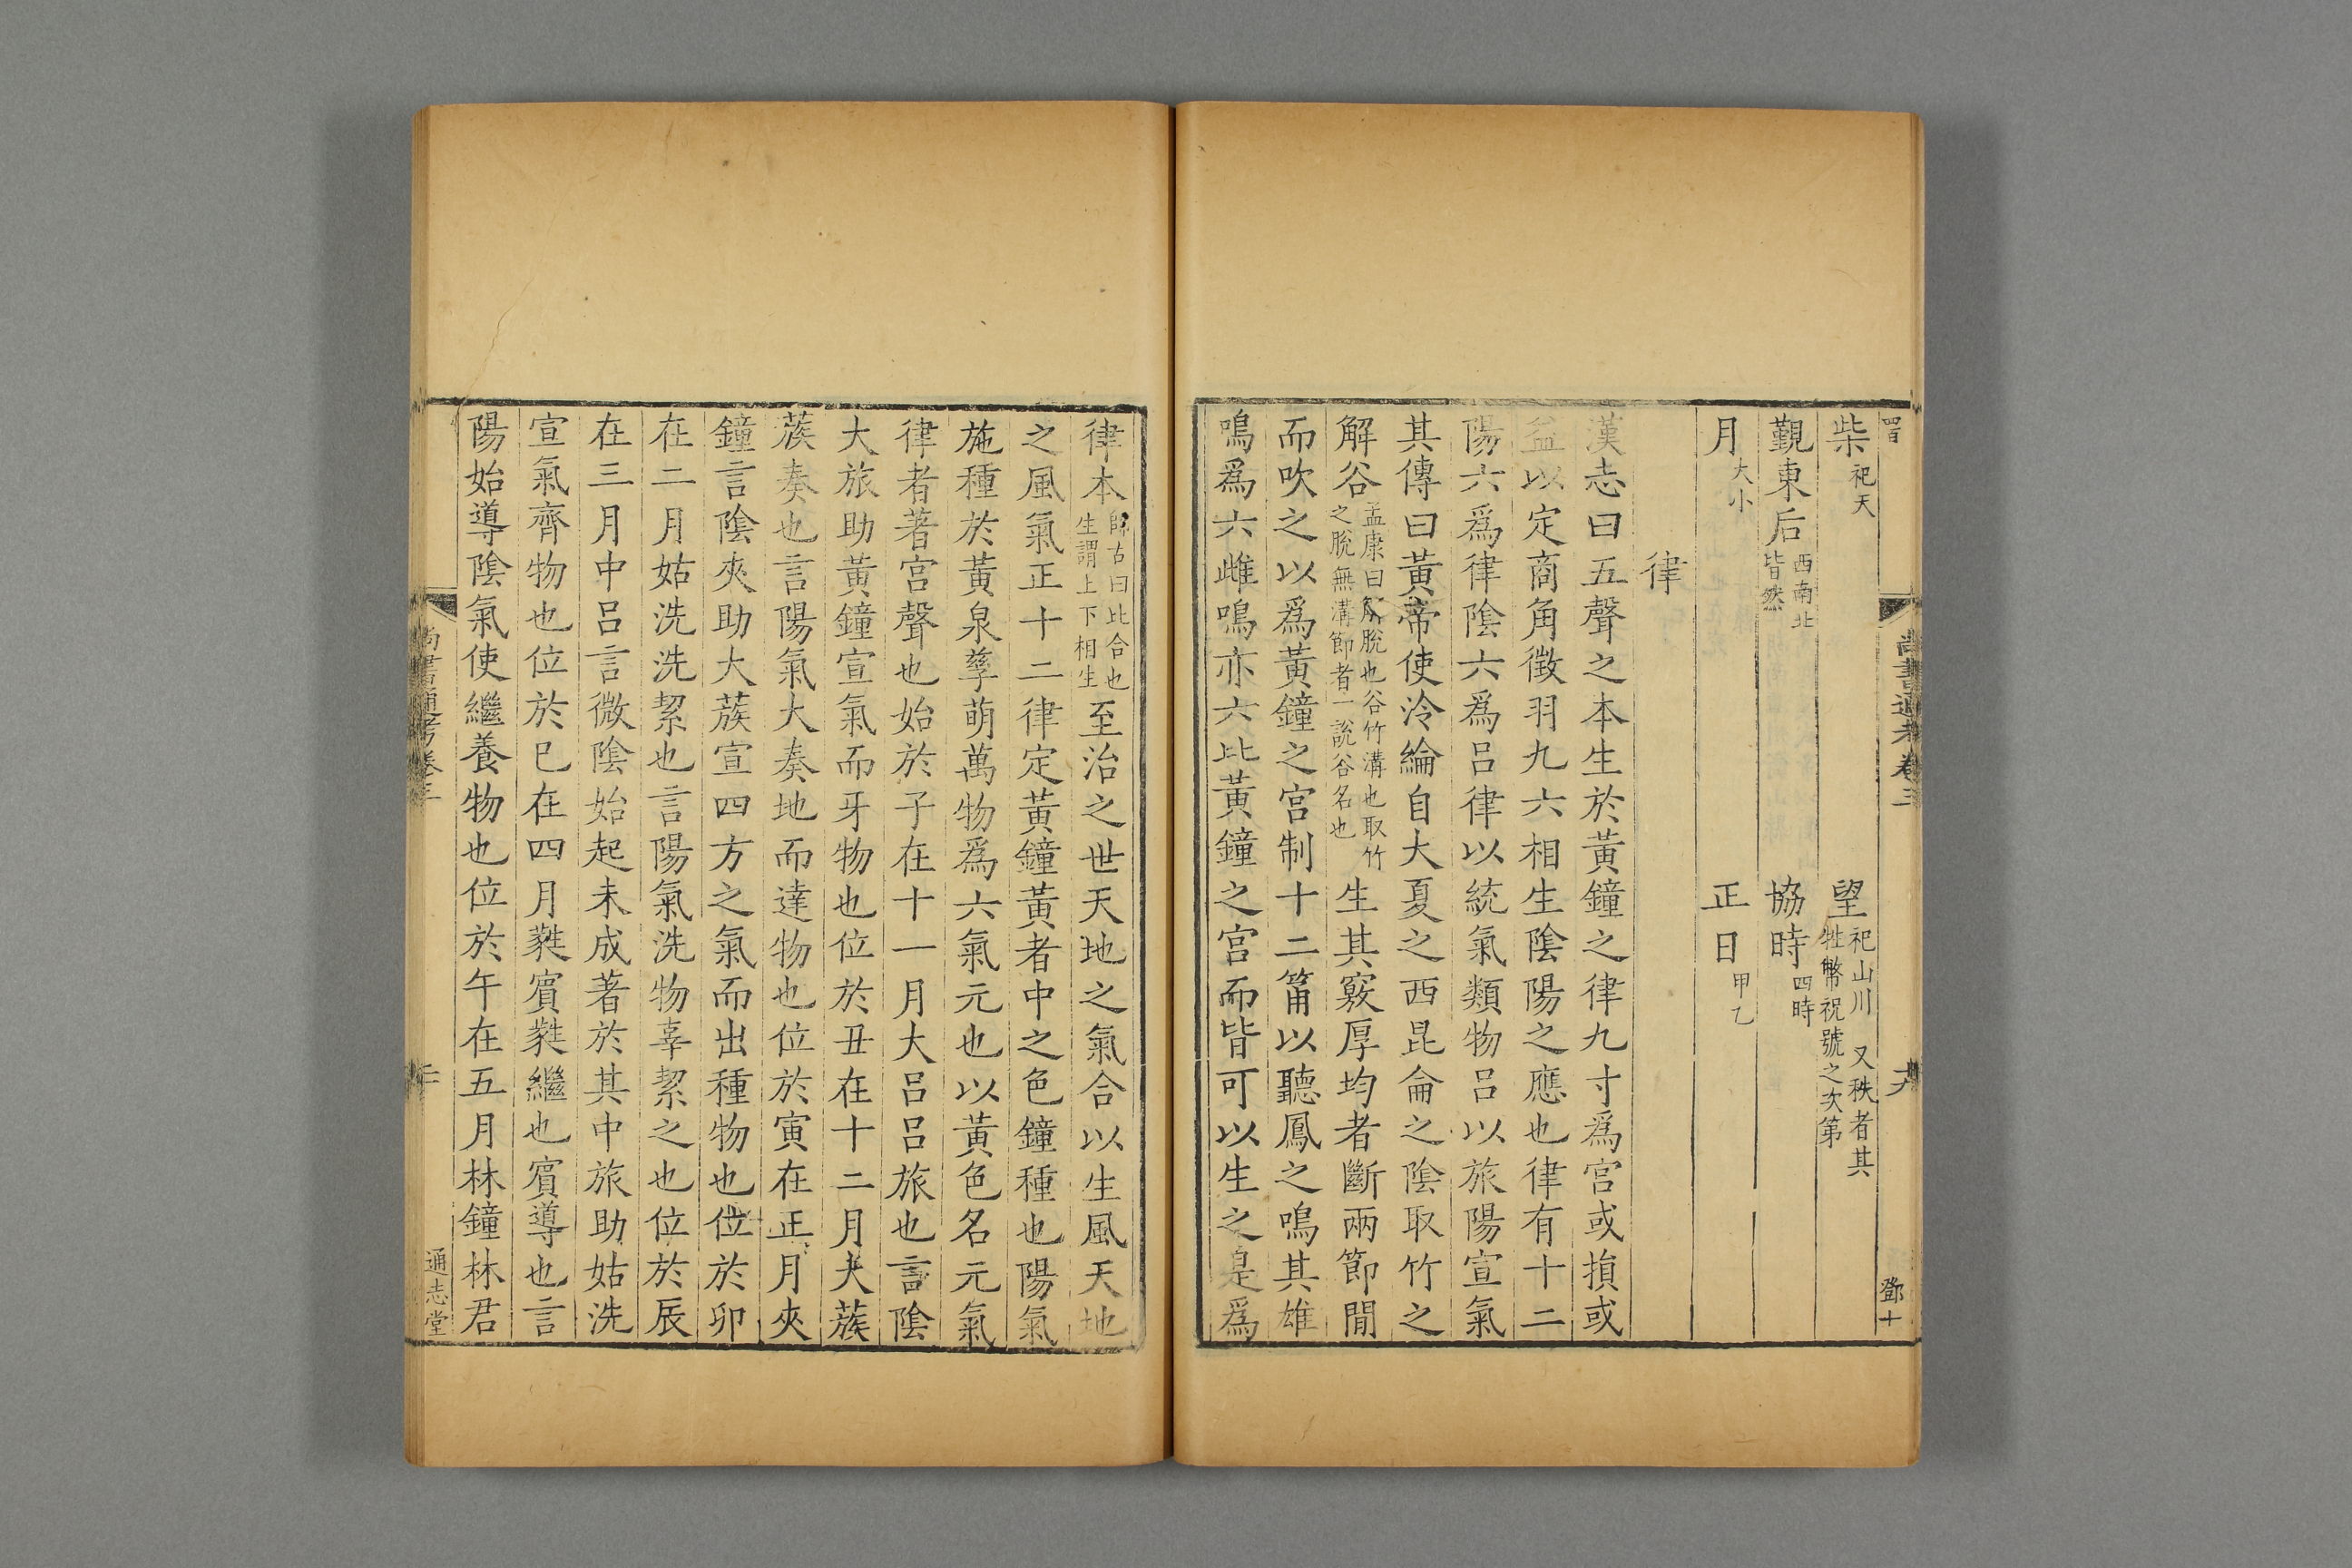 尚書通考卷三
十九
鄧十
柴祀天 望祀山川 又秩者其牲幣祝號之次第
覲東后西南北皆然 協時四時
月大小 正日甲乙
律
漢志曰五聲之本生於黃鐘之律九寸爲宮或損或
益以定商角徵羽九六相生陰陽之應也律有十二
陽六爲律陰六爲呂律以統氣類物呂以旅陽宣氣
其傳曰黃帝使泠綸自大夏之西昆侖之陰取竹之
解谷孟康曰解脫也谷竹溝也取竹之脫無溝節者一說谷名也生其竅厚均者斷兩節閒
而吹之以爲黃鐘之宮制十二筩以聽鳳之鳴其雄
鳴爲六雌鳴亦六比黃鐘之宮而皆可以生之是爲
律本師古曰比合也生謂上下相生至治之世天地之氣合以生風天地
之風氣正十二律定黃鐘黃者中之色鐘種也陽氣
施種於黃泉孳萌萬物爲六氣元也以黃色名元氣
律者著宮聲也始於子在十一月大呂呂旅也言陰
大旅助黃鐘宣氣而牙物也位於丑在十二月大蔟
蔟奏也言陽氣大奏地而達物也位於寅在正月夾
鐘言陰夾助大蔟宣四方之氣而出種物也位於卯
在二月姑洗洗絜也言陽氣洗物辜絜之也位於辰
在三月中呂言微陰始起未成著於其中旅助姑洗
宣氣齊物也位於巳在四月蕤賓蕤繼也賓導也言
陽始導陰氣使繼養物也位於午在五月林鐘林君
尚書通考卷三
二十
通志堂